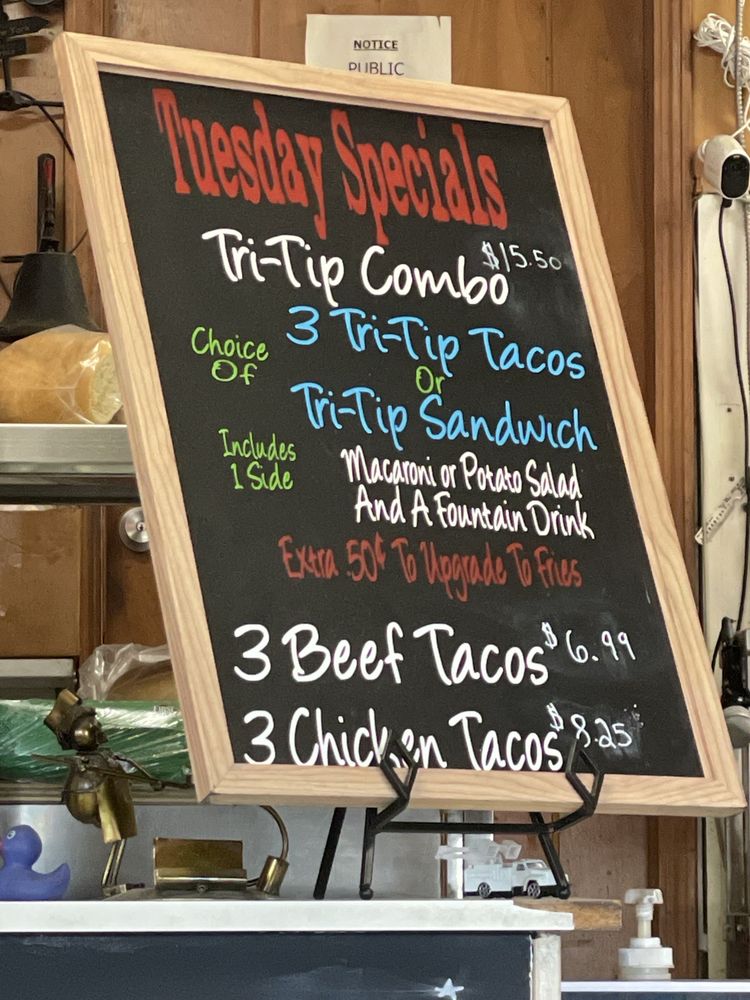 NOTICE
PUBLIC
Tuesday Specials
Tri-Tip Combo $15.50
Choice Of
3 Tri-Tip Tacos
Or
Tri-Tip Sandwich
Includes
1 Side
Macaroni or Potato Salad
And A Fountain Drink
Extra .50¢ To Upgrade To Fries
3 Beef Tacos $6.99
3 Chicken Tacos $8.25